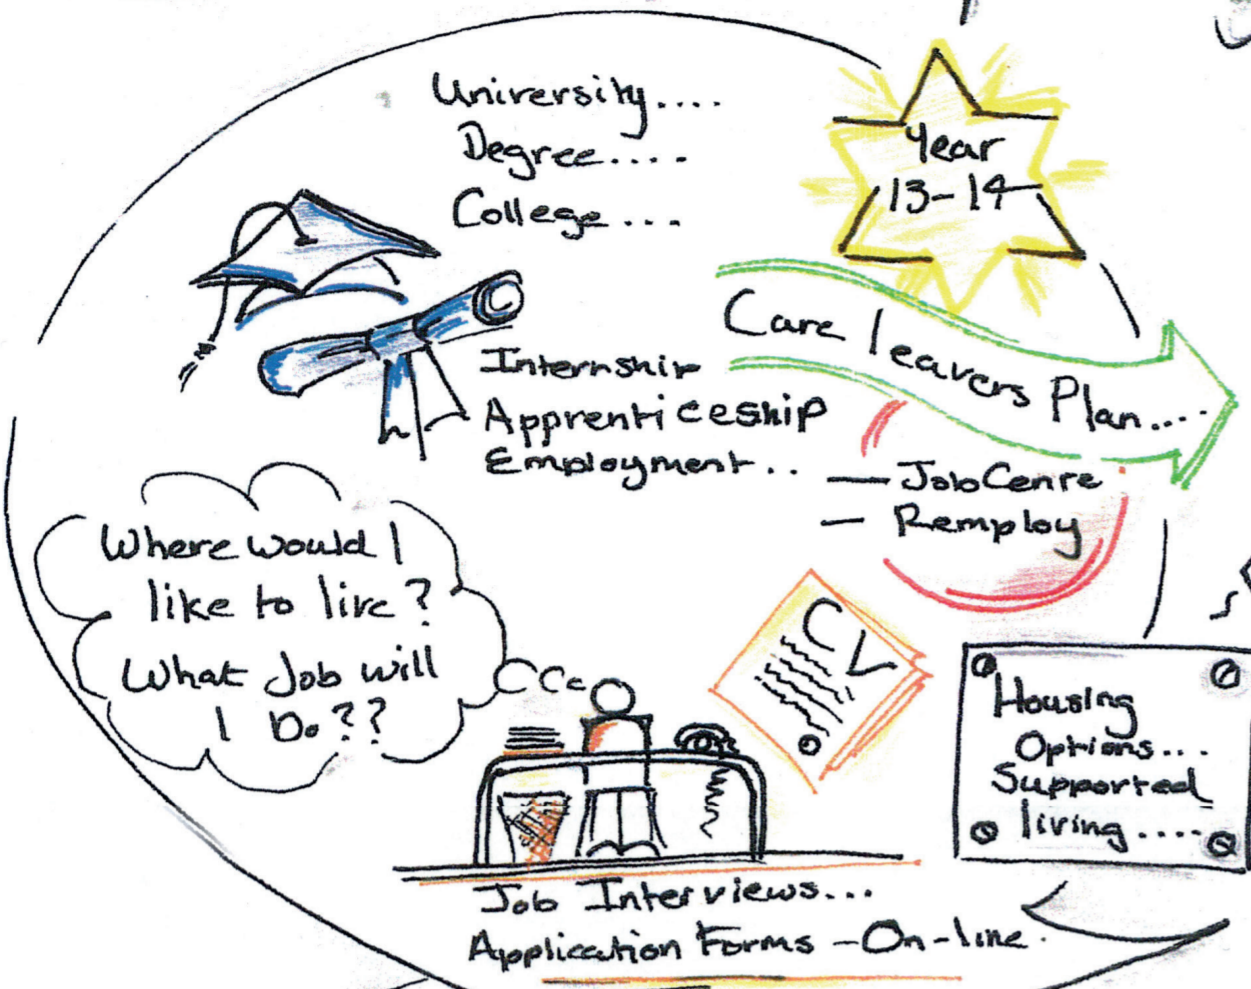 University....
Degree....
College...
Year
13-14
Care leavers Plan....
Internship
Apprenticeship
Employment..
- JobCenre
- Remploy
Where would I
like to live?
What Job will
I Do??
CV
Housing
Options...
Supported
living....
Job Interviews...
Application Forms - On-line.